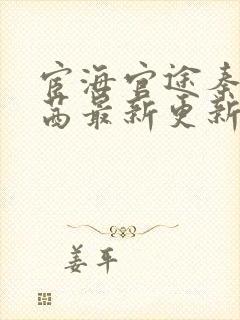 宦海官途秦
茜最新更新
姜平